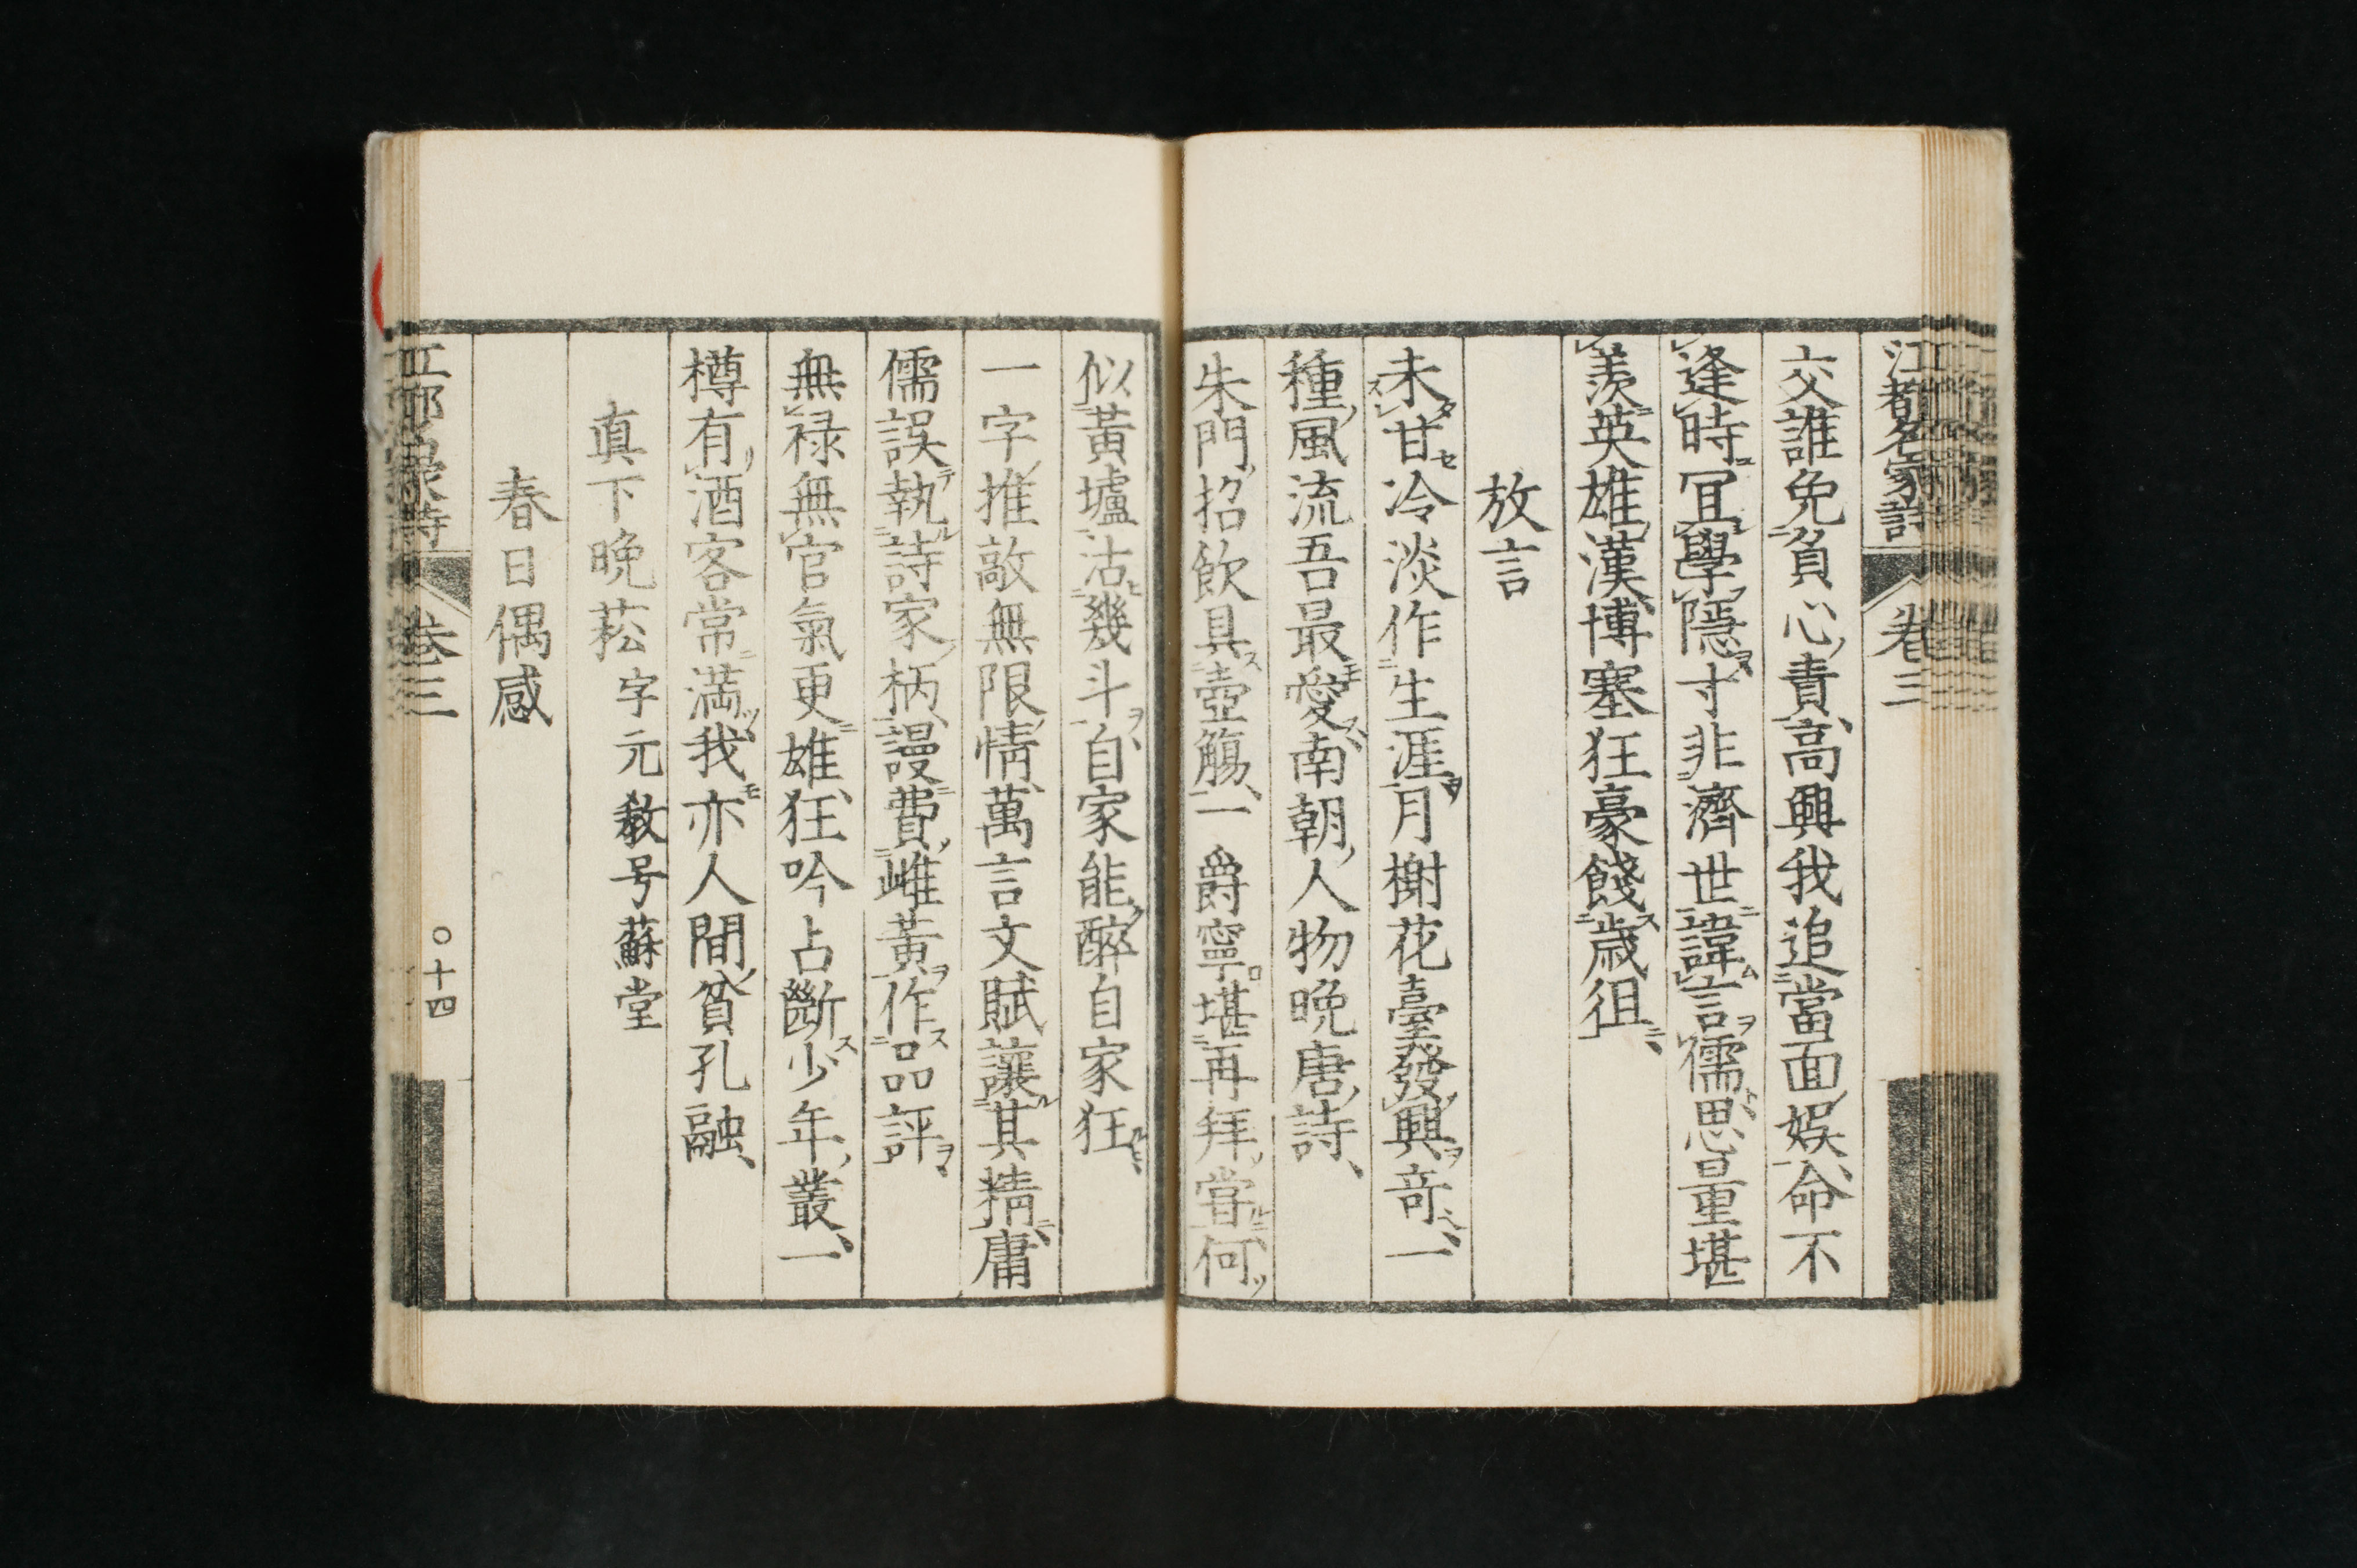 江都名家詩 卷三
交誰免負心責高興我追當面娯命不
逢時冝學隱寸非濟世諱言儒思量堪
羨英雄漢博塞狂豪餞歳徂
放言
未甘冷淡作生涯月榭花臺發興竒一
種風流吾最愛南朝人物晩唐詩
朱門招飲具壺觴一爵寧堪再拜甞何
似黃壚沽幾斗自家能醉自家狂
一字推敲無限情萬言文賦讓其精庸
儒誤執詩家柄謾費雌黃作品評
無禄無官氣更雄狂吟占斷少年叢一
樽有酒客常満我亦人間貧孔融
真下晩菘 字元敎号蘇堂
春日偶感
卷三 〇十四